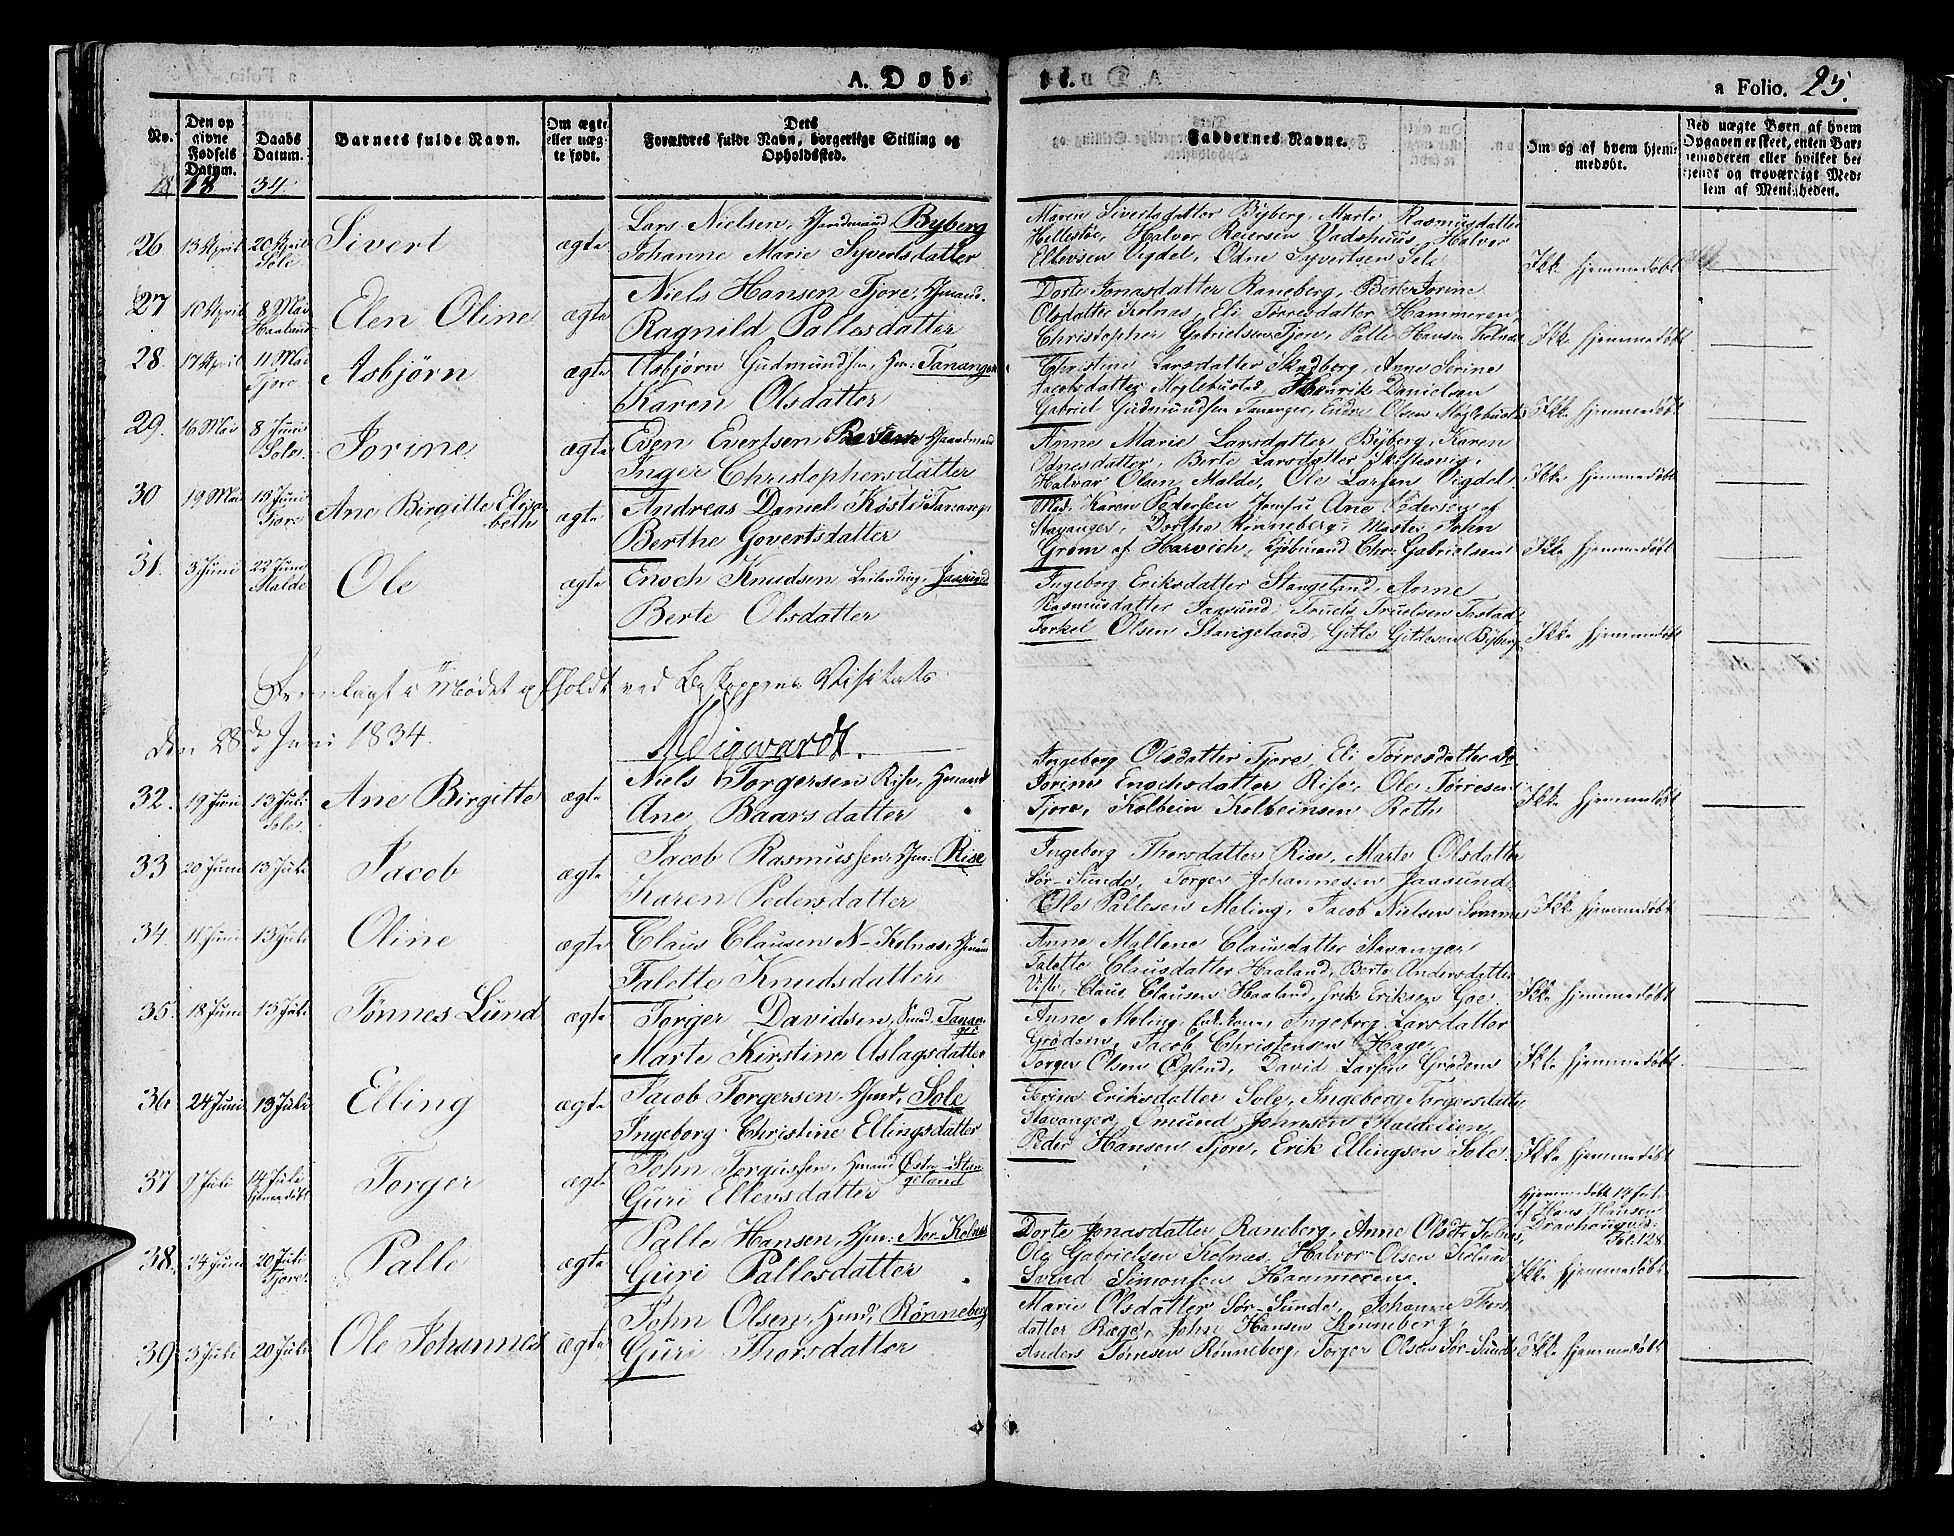 A. Døb-
te.
a Folio. 25.
No.
Den op
givne
Fødsels
Datum.
Daabs
Datum.
Barnets fulde Navn.
Om ægte
eller uæg-
te født.
Dets
Forældres fulde Navn, borgerlige Stilling og
Opholdsted.
Faddernes Navne.
Om og af hvem hjem-
medøbt.
Ved uægte Børn af hvem
Opgaven er skeet, enten Bar-
nemoderen eller hvilket be-
kjendt og troværdigt Med-
lem af Menigheden.
18 34.
26 13 April 20 April Sole Sivert ægte
Lars Nielsen, Gaardmand Byberg
Johanne Marie Syvertsdatter
Maren Sivertsdatter Byberg, Marte Rasmusdatter
Hellestøe, Halvor Reiersen Vadshuus, Halvor
Ellevsen Vigdel, Odne Syvertsen Sele
Ikke hjemmedøbt
27 10 April 8 Mai Haaland Elen Oline ægte
Niels Hansen Tjore, Gmand.
Ragnild Pallesdatter
Dorte Jonasdatter Raneberg, Berte Serine
Olsdatter Kolnas, Eli Tørresdatter Hammeren,
Christopher Gabrielsen Tjore, Palle Hansen Kolnas
Ikke hjemmedøbt
28. 17 April 11 Mai Tjore Asbjørn ægte
Asbjørn Gudmundsen, Tananger
Karen Olsdatter
Christine Larsdatter Skadberg, Anne Serine
Jacobsdatter Møglebustad, Henrik Danielsen
Gabriel Gudmundsen Tananger, Endre Olsen Møglebustad
Ikke hjemmedøbt
29. 16 Mai 8 Juni Sole. Jorine ægte
Even Evertsen Gaardmand
Inger Christophersdatter
Anne Marie Larsdatter Byberg, Karen
Odnesdatter, Berte Larsdatter
Halvar Olsen Malde, Ole Larsen Vigdel.
Ikke hjemmedøbt
30 19 Mai 15 Juni Tjore Ane Birgitte Elisa-
beth ægte
Andreas Daniel Køsti Tananger
Berthe Govertsdatter
Mad. Karen Pedersen Jomfru Ane Pedersen af
Stavanger, Dorthe Rinneberg, Master John
Grøm af Harvich, Kjøbmand Chr. Gabrielsen
Ikke hjemmedøbt
31. 3 Juni 22 Juni Malde Ole ægte
Enoch Knudsen Leilending, Jaasund
Berte Olsdatter
Ingeborg Eriksdatter Stangeland, Anne
Rasmusdatter Jaasund, Truels Truelsen
Torkel Olsen Stangeland, Gitle Gitlesen Byberg
Ikke hjemmedøbt
Fremlagt i Mødet afholdt ved Biskoppens Visitats
den 28de Juni 1834.
32. 19 Juni 13 Juli Sole. Ane Birgitte ægte
Niels Torgersen Rise, Gmand
Ane Baarsdatter
Ingeborg Olsdatter Tjore, Eli Tørresdatter
Jorine Enochsdatter Rise, Ole Tørresen
Tjore, Kolbein Kolbeinsen Roth
Ikke hjemmedøbt
33 20 Juni 13 Juli Jacob ægte
Jacob Rasmussen, Gm: Rise
Karen Pedersdatter
Ingeborg Thorsdatter Rise, Marte Olsdatter
Sør-Sunde, Torger Johannesen Jaasund
Ole Pallesen Meling, Jacob Nielsen Sømme
Ikke hjemmedøbt
34 11 Juni 13 Juli Oline ægte
Claus Clausen N-Kolnas, Gmand
Talette Knudsdatter
Anne Mallene Clausdatter Stavanger
Talette Clausdatter Haaland, Berte Andersdatter
Viste, Claus Clausen Haaland, Erik Eriksen Goe.
Ikke hjemmedøbt
35. 18 Juni 13 Juli Tønnes Lund ægte
Torger Davidsen, Tanan-
ger
Marte Kirstine Aslagsdatter
Anne Meling, Ingeborg Larsdatter
Grødem, Jacob Christensen Hage,
Torger Olsen Øglend, David Larsen Grødem
Ikke hjemmedøbt.
36 24 Juni 13 Juli Elling ægte
Jacob Torgersen, Gmd, Sole
Ingeborg Christine Ellingsdatter
Serine Eriksdatter Sole, Ingeborg Torgersdatter
Stavanger, Omund Johnsen
Peder Hansen Tjore, Erik Ellingsen Sole
Ikke hjemmedøbt
37 9 Juli 14 Juli hjemmedøbt Torger ægte
John Torgussen, Gmand Østre-Stan-
geland
Guri Ellevsdatter
Hjemmedøbt 14 Juli
af Hans Hansen
Fol. 128
38. 24 Juni 20 Juli Tjore. Palle ægte
Palle Hansen, Gm: Nor-Kolnas
Guri Pallesdatter
Dorte Jonasdatter Raneberg, Anne Olsdtr Kolnas,
Ole Gabrielsen Kolnas, Halvor Olsen Kolnas
Svend Simonsen Hammeren.
Ikke hjemmedøbt
39 3 Juli 20 Juli Ole Johannes ægte
John Olsen, Gmd, Rønneberg
Guri Thorsdatter
Marie Olsdatter Sør-Sunde, Johanne Thors-
datter Ræge, John Hansen Rønneberg,
Anders Tørresen Rønneberg, Torger Olsen Sør-Sunde
Ikke hjemmedøbt